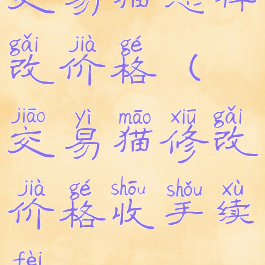 交易猫怎样
gǎi jià gé
改价格（
jiāo yì māo xiū gǎi
交易猫修改
jià gé shōu shǒu xù
价格收手续
fèi